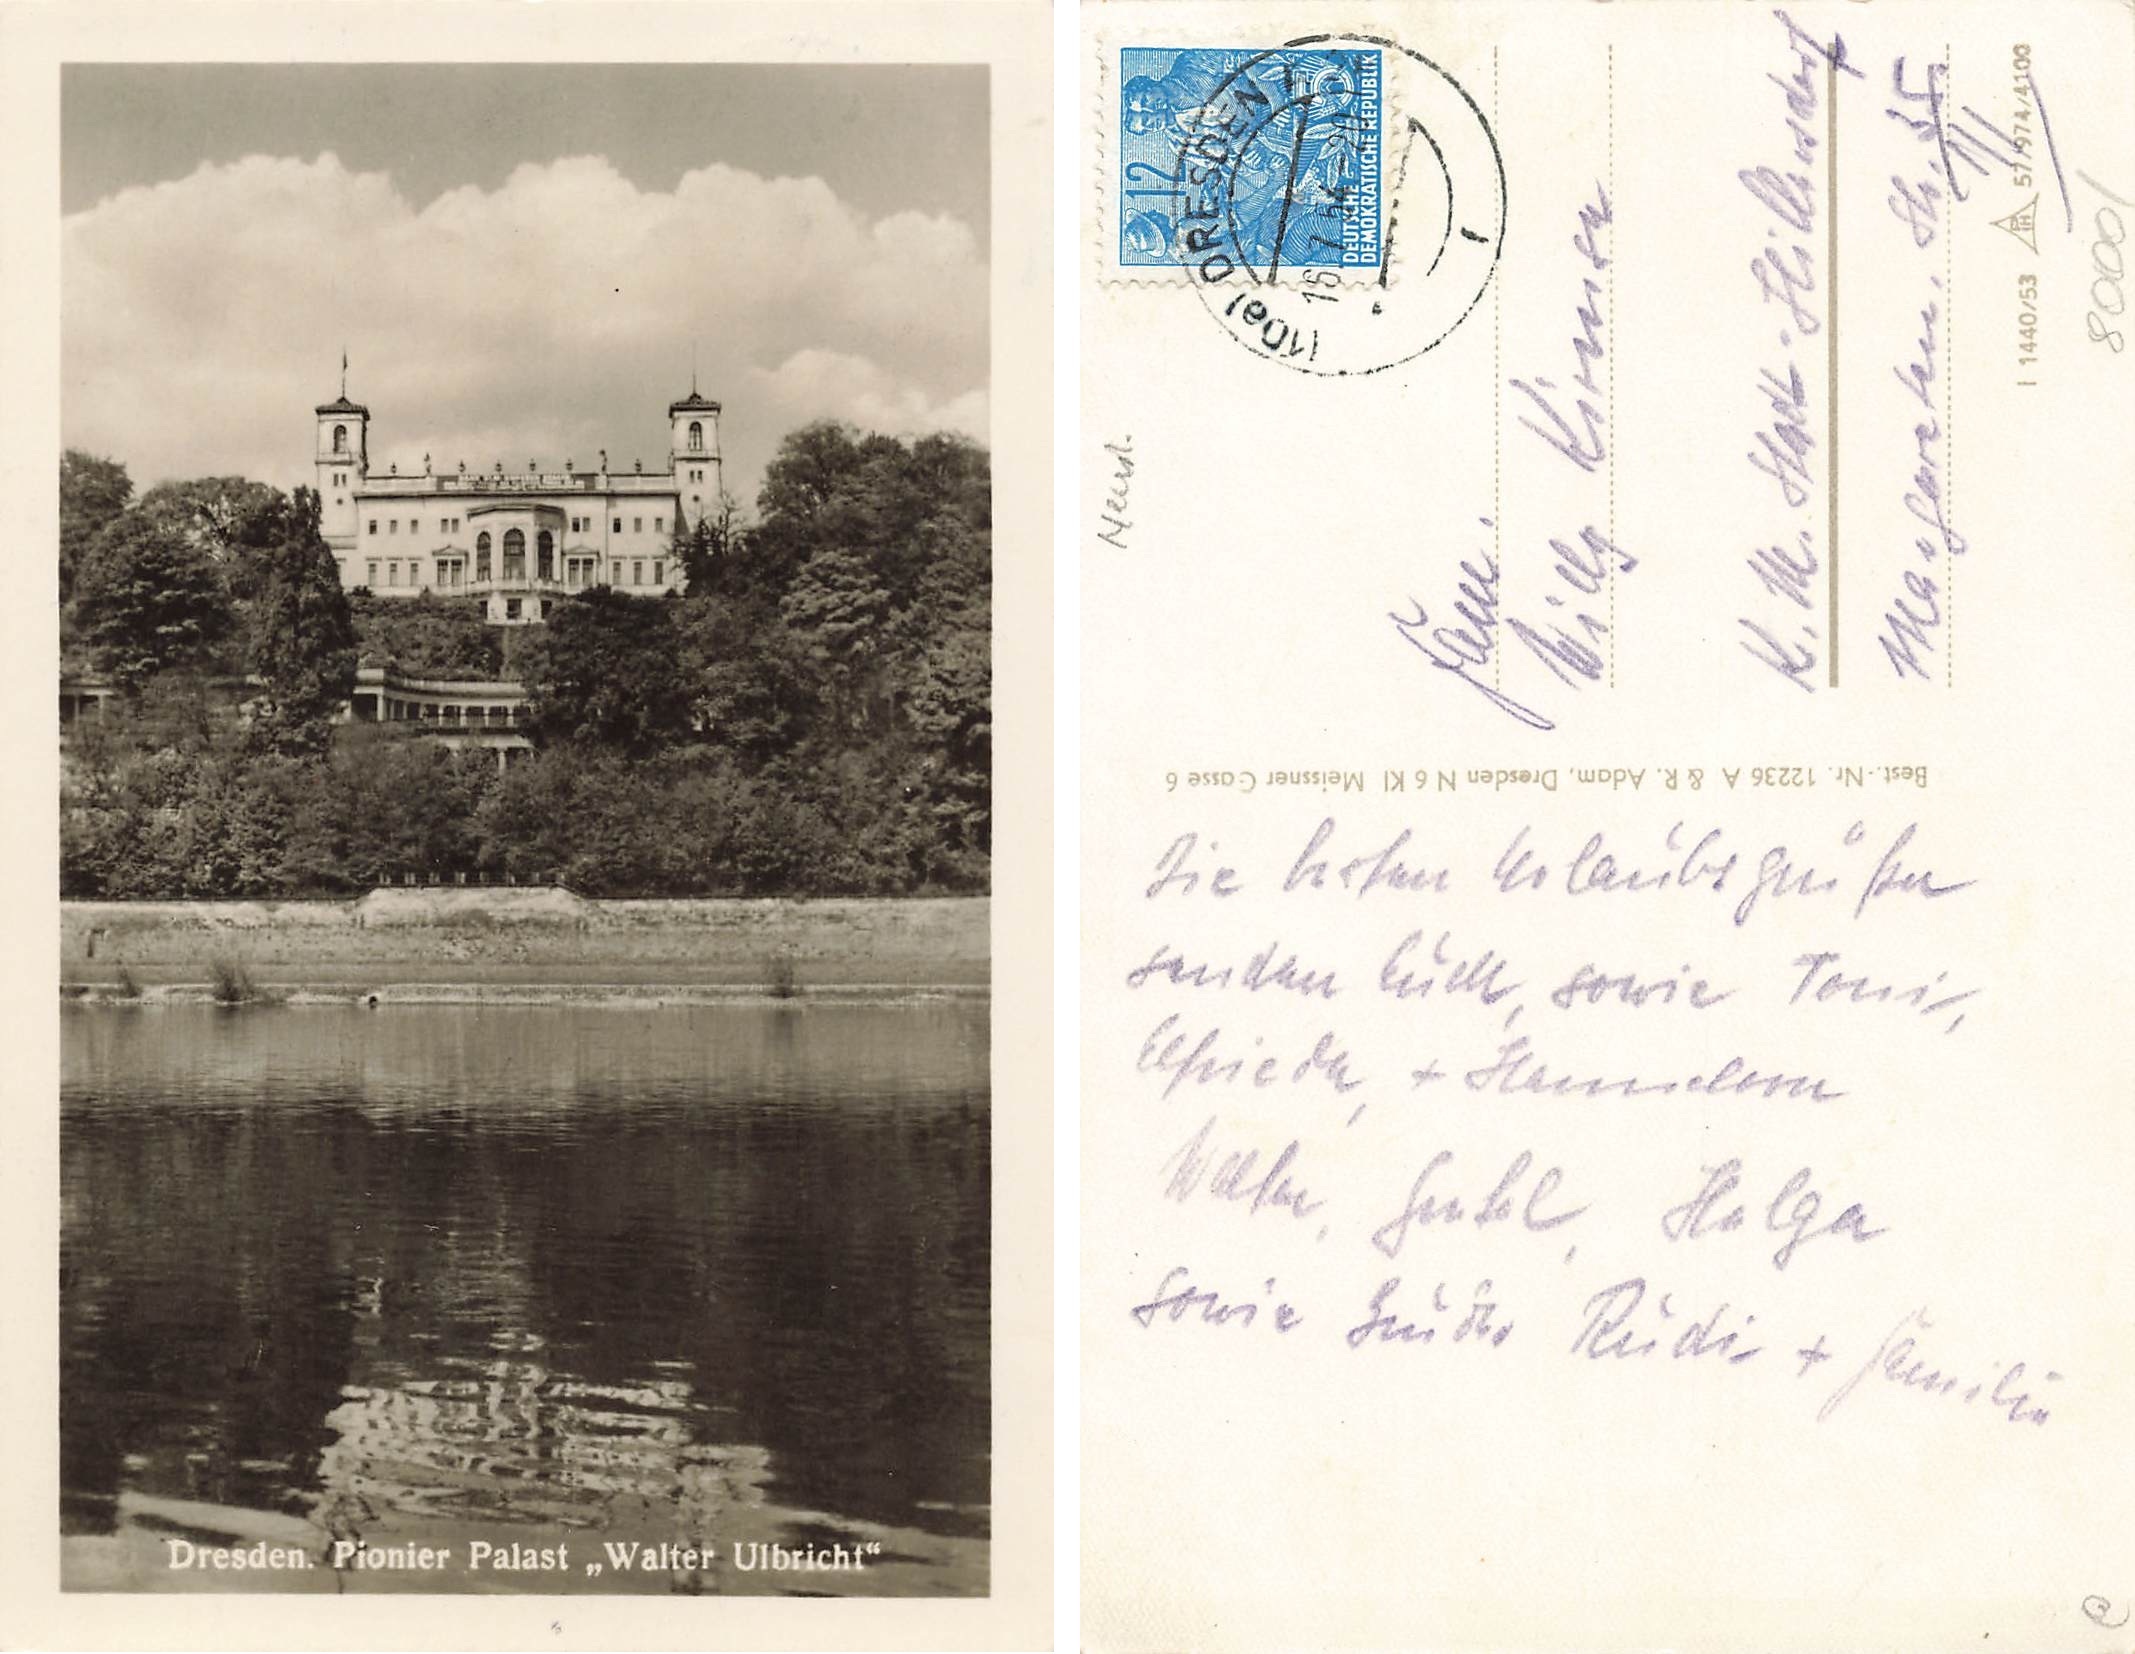 Dresden. Pionier Palast „Walter Ulbricht“
12
DEUTSCHE
DEMOKRATISCHE REPUBLIK
(10a) DRESDEN
16.7.54-20
Neust.
Fam.
Willy
K. M. Stadt-Hilbersdorf
Margareten. Str. 35
III
I 1440/53 57/974/4100
80001
Best.-Nr. 12236 A & R. Adam, Dresden N 6 Kl Meissner Gasse 6
Die besten Urlaubsgrüße
senden Euch, sowie Toni,
Elfriede, + Hannelore
Walter, Gretel, Helga
sowie Rudi + Familie